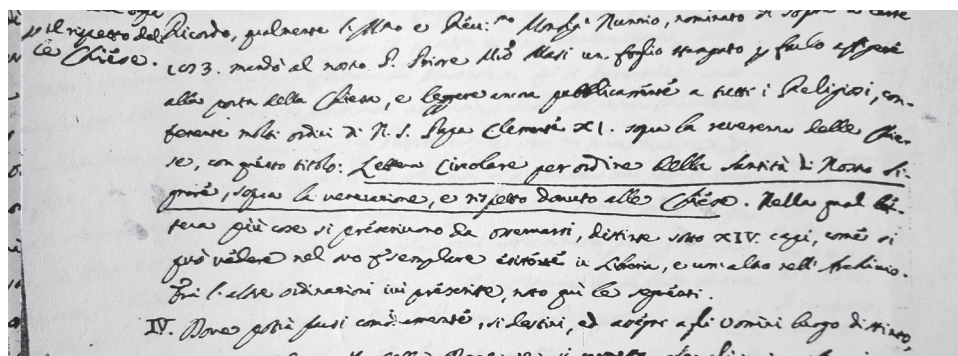 p il rispetto del
le Chiese.
Ricordo, qualmente l'Illmo e Revmo Monsigr Nunzio, nominato di sopra a carte
1073. mandò al nostro P. Priore Mro Masi un foglio stampato p farlo affigere
alla porta della Chiesa, e leggere ancora pubblicamente a tutti i Religiosi, con-
ferente molti ordini di N. S. Papa Clemente XI. sopra la reverenza delle Chie-
se, con questo titolo: Lettera Circolare per ordine della Santità di Nostro Si-
gnore, sopra la venerazione, e rispetto dovuto alle Chiese. Nella qual let-
tera più cose si prescrivono da osservarsi, distinte sotto XIV. capi, come si
può vedere nel suo esemplare esistente in Libreria, e un'altro nell'Archivio.
Frà l'altre ordinazioni ivi prescritte, noto quì le seguenti.
IV. Dove potrà farsi comodamente, si destini, ed assegni agli Uomini luogo distinto,